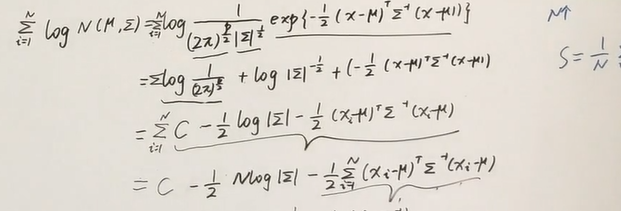 $\sum_{i=1}^{N} \log N(\mu, \Sigma) = \sum_{i=1}^{N} \log \frac{1}{(2\pi)^{\frac{p}{2}} |\Sigma|^{\frac{1}{2}}} \exp\{-\frac{1}{2}(x-\mu)^T \Sigma^{-1}(x-\mu)\}$ N↑
$= \Sigma \log \frac{1}{(2\pi)^{\frac{p}{2}}} + \log |\Sigma|^{-\frac{1}{2}} + (-\frac{1}{2}(x-\mu)^T \Sigma^{-1}(x-\mu))$ $S = \frac{1}{N}$
$= \sum_{i=1}^{N} C - \frac{1}{2} \log |\Sigma| - \frac{1}{2}(x_i-\mu)^T \Sigma^{-1}(x_i-\mu)$
$= C - \frac{1}{2} N \log |\Sigma| - \frac{1}{2} \sum_{i=1}^{N} (x_i-\mu)^T \Sigma^{-1}(x_i-\mu)$